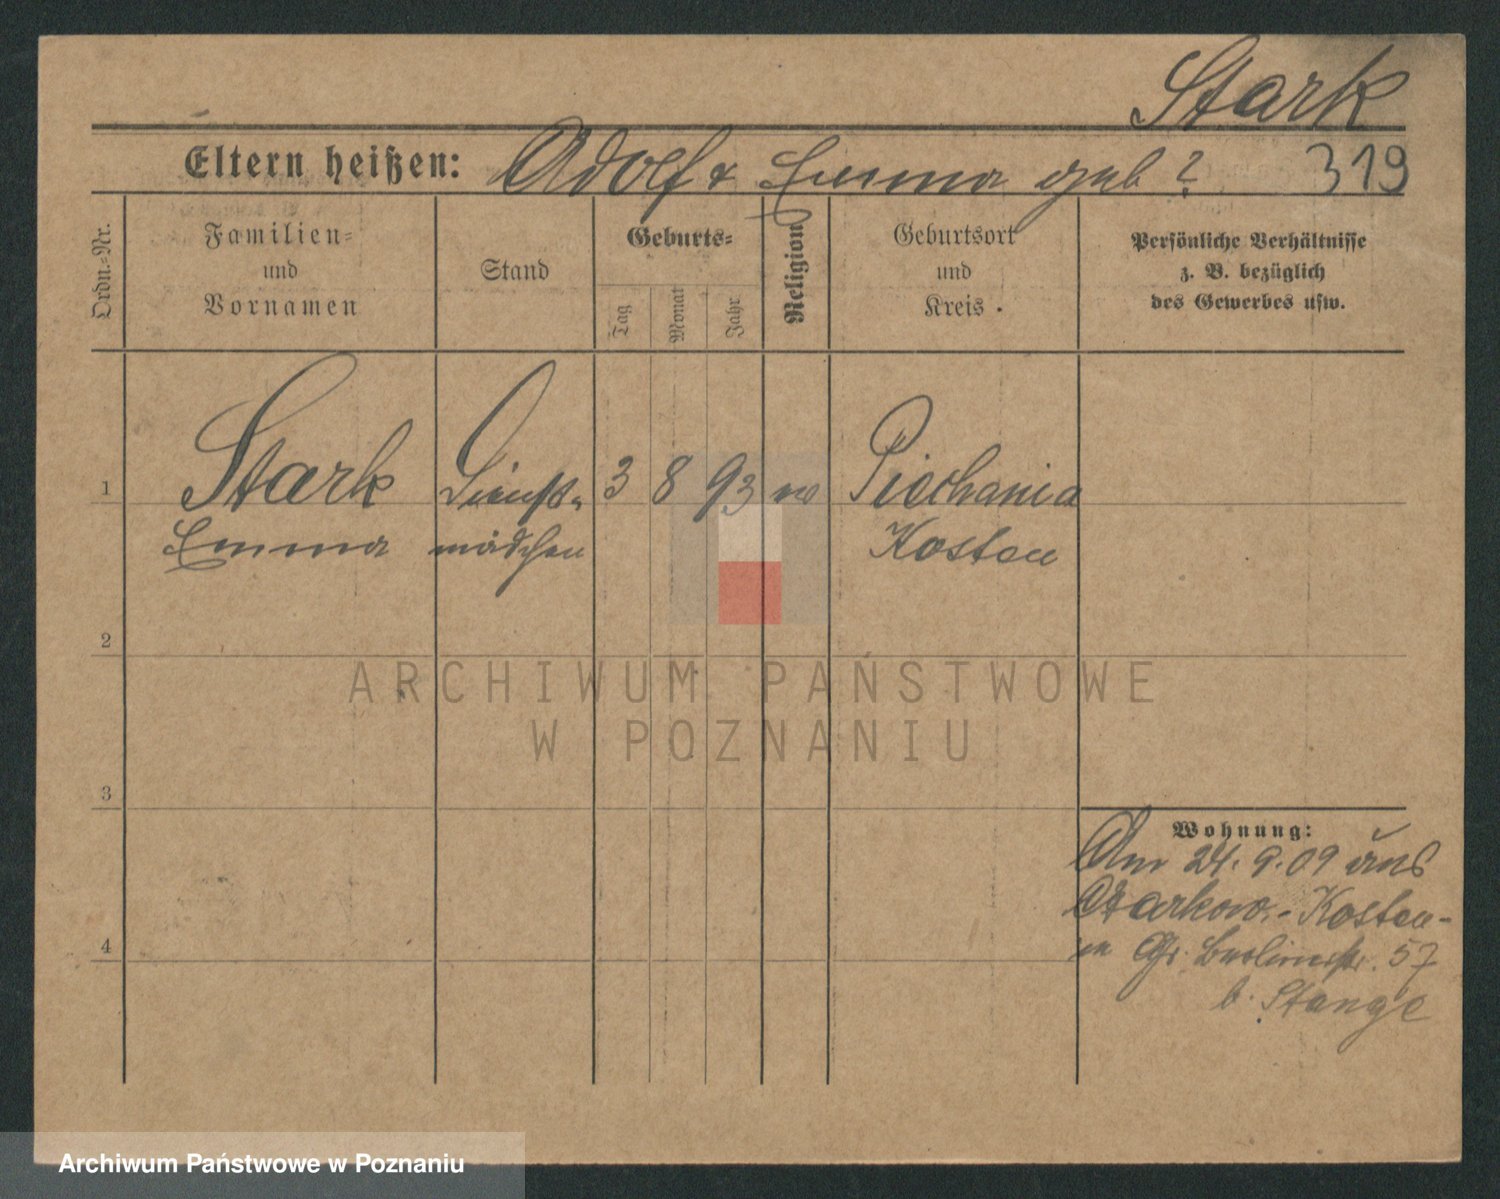 Stark
Eltern heißen: Adolf & Emma geb ? 319
Ordn.-Nr.
Familien-
und
Vornamen
Stand
Geburts-
Tag
Monat
Jahr
Religion
Geburtsort
und
Kreis.
Persönliche Verhältnisse
z. B. bezüglich
des Gewerbes usw.
1 Stark Dienst- 3 8 93 Piechania
Emma mädchen Kosten
2
3
4
Wohnung:
Am 24.9.09 aus
Kosten-
57
b. Stange
ARCHIWUM PAŃSTWOWE
W POZNANIU
Archiwum Państwowe w Poznaniu